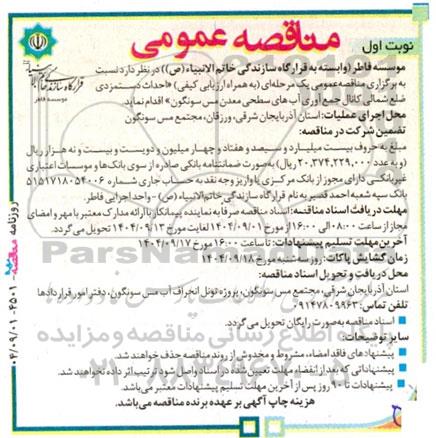 مناقصه عمومی
نوبت اول
قرارگاه سازندگی خاتم الانبیاء
موسسه فاطر
موسسه فاطر (وابسته به قرارگاه سازندگی خاتم الانبیاء (ص)) در نظر دارد نسبت
به برگزاری مناقصه عمومی یک مرحله‌ای (به همراه ارزیابی کیفی) «احداث دستمزدی
ضلع شمالی کانال جمع آوری آب های سطحی معدن مس سونگون» اقدام نماید.
محل اجرای عملیات: استان آذربایجان شرقی، ورزقان، مجتمع مس سونگون
تضمین شرکت در مناقصه:
مبلغ به حروف بیست میلیارد و سیصد و هفتاد و چهار میلیون و دویست و بیست و نه هزار ریال
(و به عدد ۲۰،۳۷۴،۲۲۹،۰۰۰ ریال) به صورت ضمانتنامه بانکی صادره از سوی بانک‌ها و موسسات اعتباری
غیربانکی دارای مجوز از بانک مرکزی یا واریز وجه نقد به حساب جاری شماره ۵۱۵۱۷۱۸۰۵۴۰۰۶
بانک سپه شعبه احمد قصیر به نام قرارگاه سازندگی خاتم الانبیاء (ص) - واحد اجرایی فاطر.
مهلت دریافت اسناد مناقصه: اسناد مناقصه صرفا به نماینده پیمانکار با ارائه مدارک معتبر با مهر و امضای
مجاز از ساعت ۰۸:۰۰ الی ۱۶:۰۰ از مورخ ۱۴۰۴/۰۹/۰۱ لغایت مورخ ۱۴۰۴/۰۹/۱۳ تحویل می‌گردد.
آخرین مهلت تسلیم پیشنهادات: تا ساعت ۱۶:۰۰ مورخ ۱۴۰۴/۰۹/۱۷
زمان گشایش پاکات: روز سه شنبه مورخ ۱۴۰۴/۰۹/۱۸
محل دریافت و تحویل اسناد مناقصه:
استان آذربایجان شرقی، مجتمع مس سونگون، پروژه تونل انحراف آب مس سونگون، دفتر امور قراردادها
تلفن تماس: ۰۹۱۴۷۸۰۹۹۶۳
اسناد مناقصه به صورت رایگان تحویل می گردد.
سایر توضیحات:
پیشنهادهای فاقد امضاء، مشروط و مخدوش از روند مناقصه حذف خواهند شد.
پیشنهاداتی که بعد از انقضاء مهلت تعیین شده در اسناد واصل شود ترتیب اثر داده نخواهند شد.
پیشنهادات تا ۹۰ روز پس از آخرین مهلت تسلیم پیشنهادات معتبر می‌باشد.
هزینه چاپ آگهی بر عهده برنده مناقصه می‌باشد.
روزنامه مناقصه
۴۵۰۱ - ۰۴/۰۹/۰۱